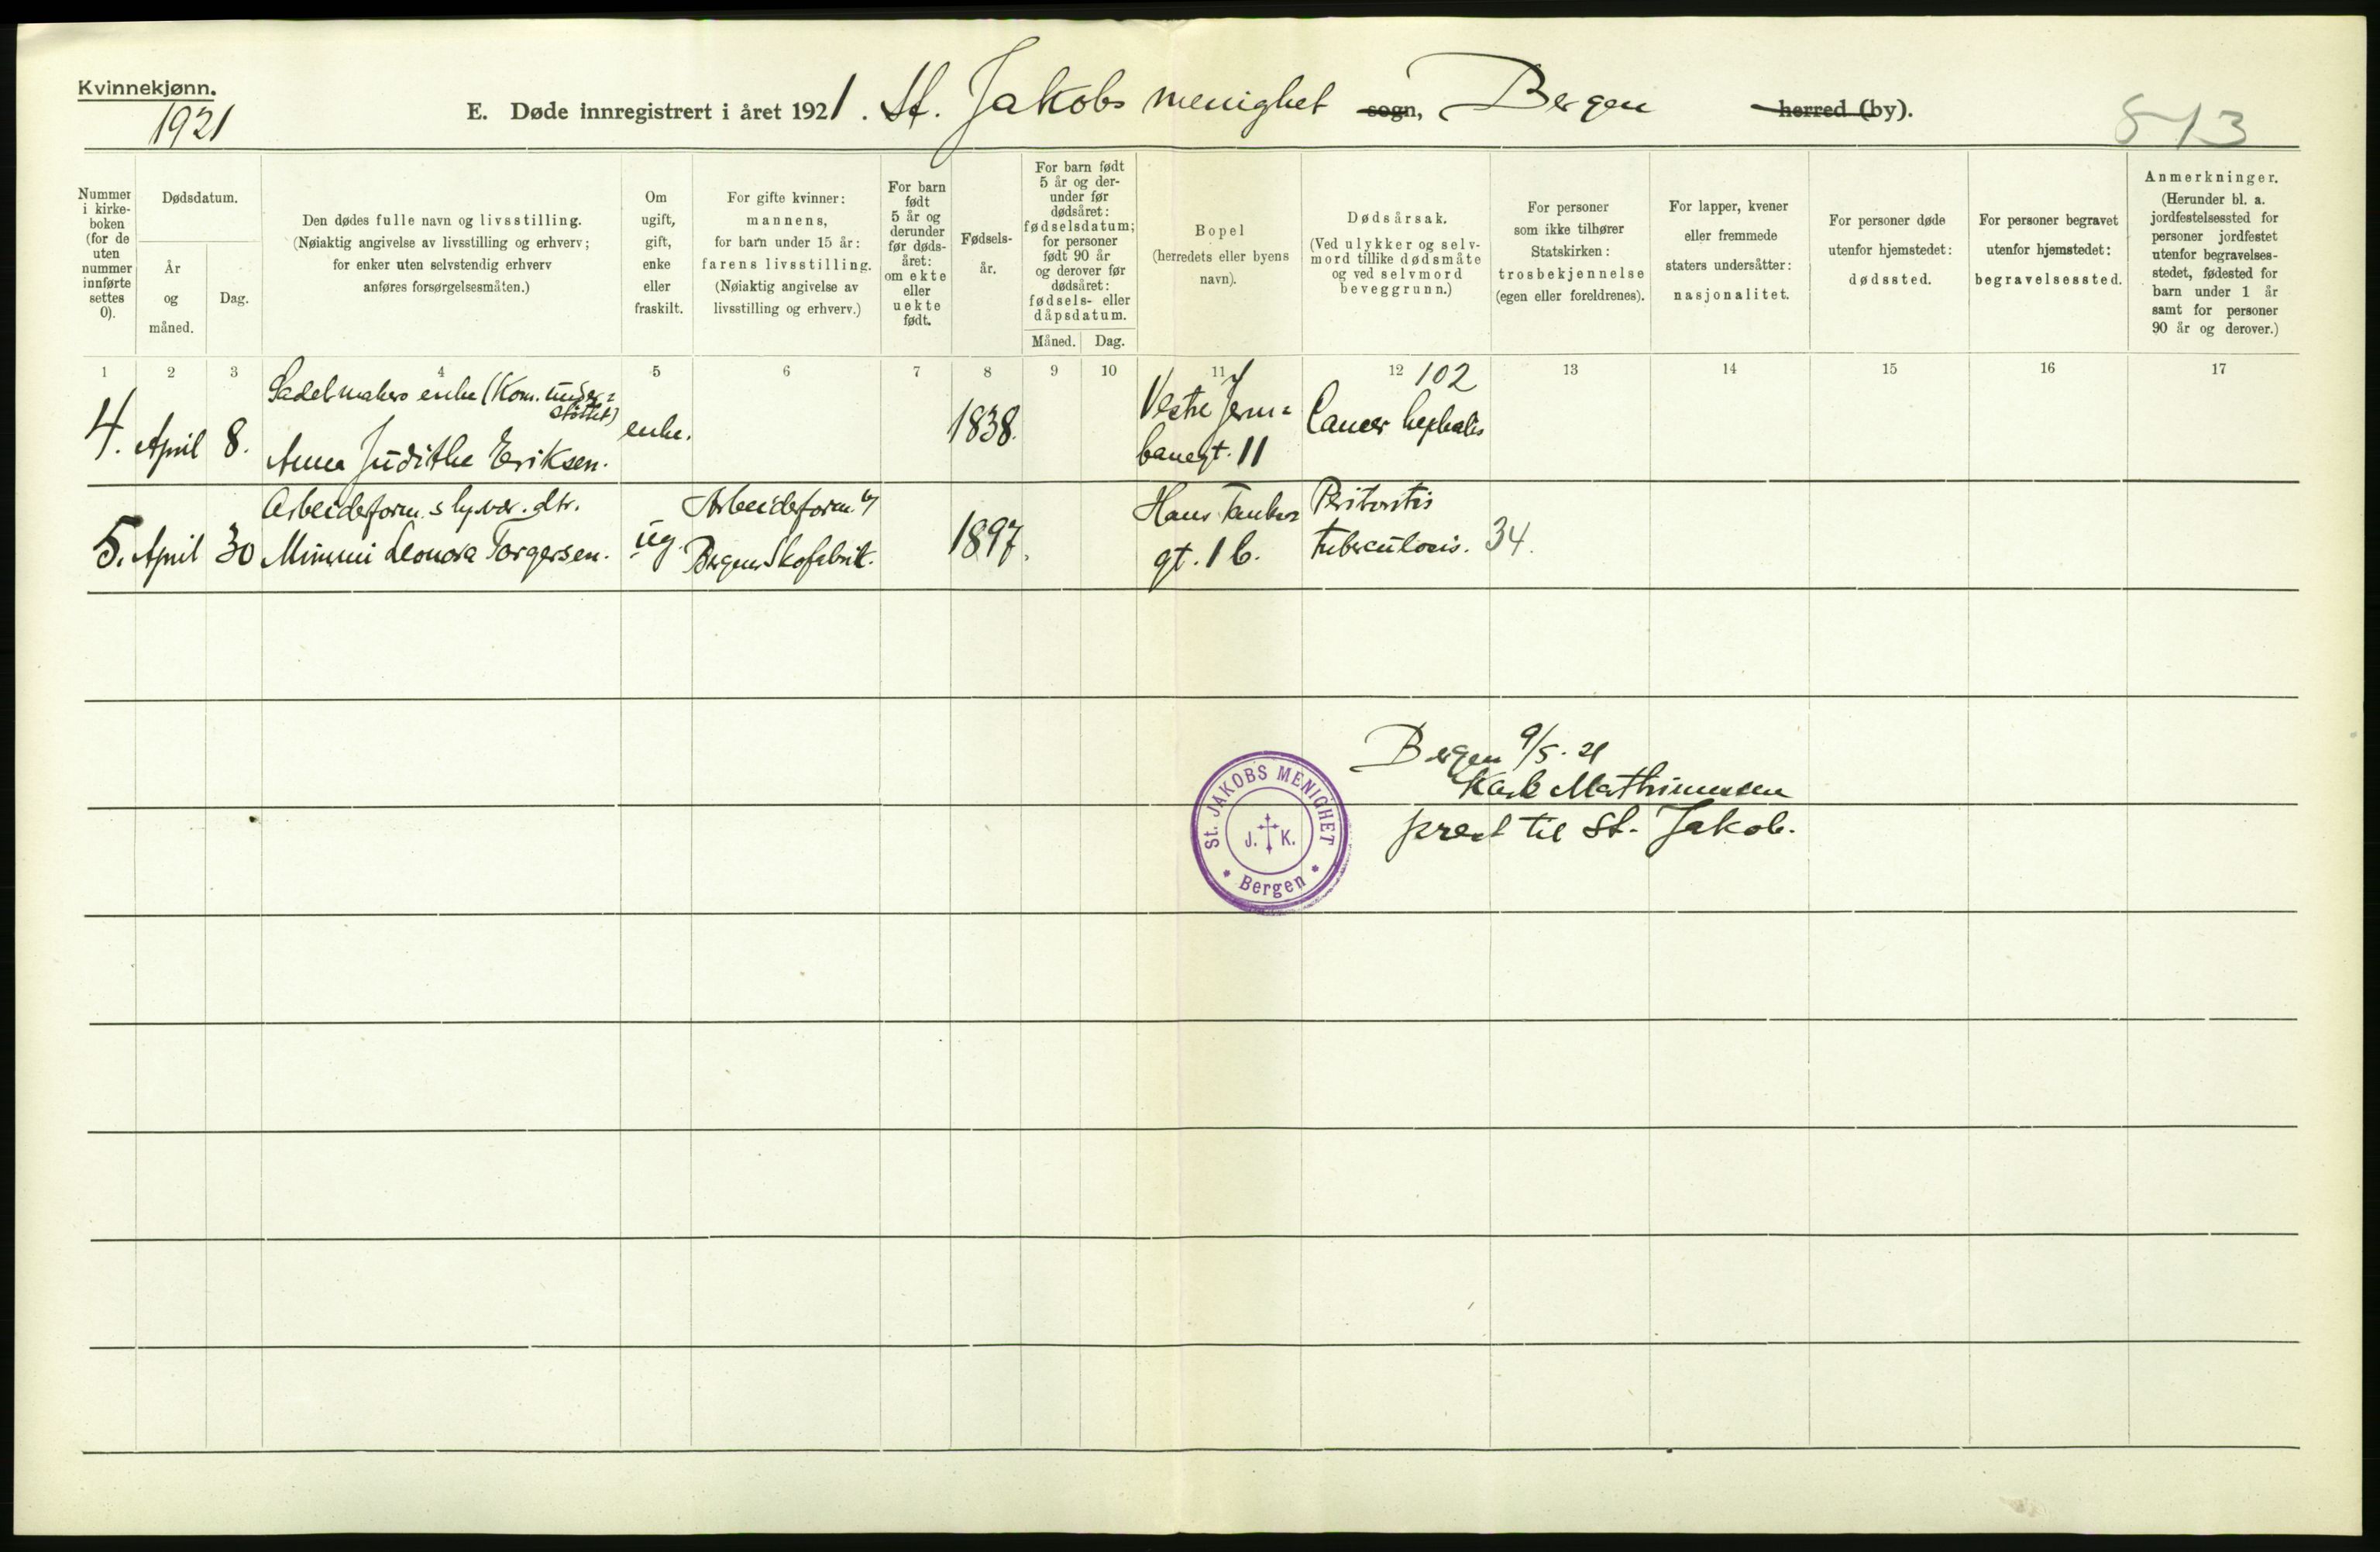 Kvinnekjønn.
1921
E. Døde innregistrert i året 1921. St. Jakobs menighet sogn, Bergen herred (by).
513
Nummer i kirke-boken (for de uten nummer innførte settes 0).
Dødsdatum.
År og måned.
Dag.
Den dødes fulle navn og livsstilling.
(Nøiaktig angivelse av livsstilling og erhverv;
for enker uten selvstendig erhverv
anføres forsørgelsesmåten.)
Om ugift, gift, enke eller fraskilt.
For gifte kvinner:
mannens,
for barn under 15 år:
farens livsstilling.
(Nøiaktig angivelse av
livsstilling og erhverv.)
For barn født 5 år og derunder før døds-året: om ekte eller uekte født.
Fødsels-år.
For barn født
5 år og der-
under før
dødsåret:
fødselsdatum;
for personer
født 90 år
og derover før
dødsåret:
fødsels- eller
dåpsdatum.
Måned. Dag.
Bopel
(herredets eller byens
navn).
Dødsårsak.
(Ved ulykker og selv-
mord tillike dødsmåte
og ved selvmord
beveggrunn.)
For personer
som ikke tilhører
Statskirken:
trosbekjennelse
(egen eller foreldrenes).
For lapper, kvener
eller fremmede
staters undersåtter:
nasjonalitet.
For personer døde
utenfor hjemstedet:
dødssted.
For personer begravet
utenfor hjemstedet:
begravelsessted.
Anmerkninger.
(Herunder bl. a.
jordfestelsessted for
personer jordfestet
utenfor begravelses-
stedet, fødested for
barn under 1 år
samt for personer
90 år og derover.)
1 2 3 4 5 6 7 8 9 10 11 12 13 14 15 16 17
102
Sadelmakers enke (Kom. under=
støttet)
4. April 8. Anna Judithe Eriksen. enke. 1838. Vestre Jern=
banegt. 11
Cancer hephatis
Arbeidsform.s hj.vær. dtr.
5. April 30 Mimmi Leonora Torgersen. ug. Arbeidsform. v/
Bergens Skofabrik. 1897. Hans Tanks
gt. 1 b.
Peritonitis
tuberculosis. 34.
Bergen 9/5. 21
Karl Mathiesen
prest til St. Jakob.
St. JAKOBS MENIGHET
J. K.
Bergen